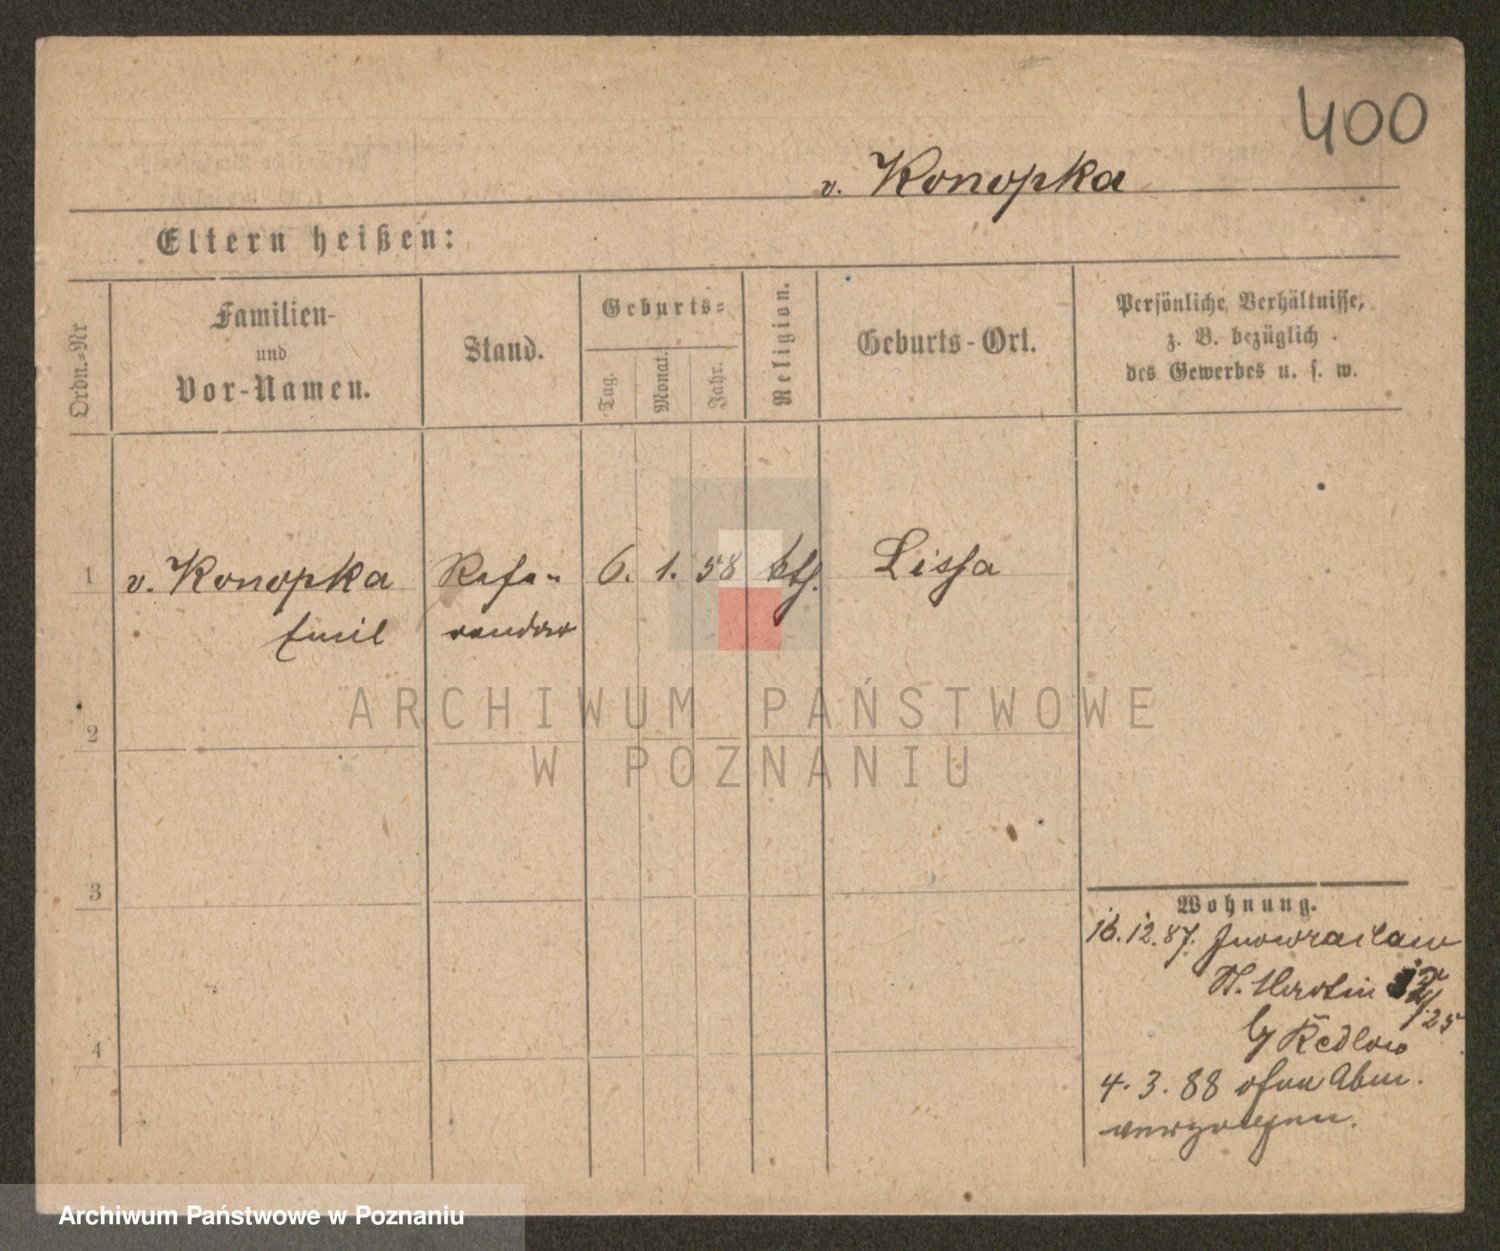 400
v. Konopka
Eltern heißen:
Ordn.=Nr
Familien-
und
Vor-Namen.
Stand.
Geburts=
Tag.
Monat.
Jahr.
Religion.
Geburts-Ort.
Persönliche Verhältnisse,
z. B. bezüglich
des Gewerbes u. s. w.
1 v. Konopka Refe- 6. 1. 58 kth. Lissa
Emil rendar
ARCHIWUM PAŃSTWOWE
W POZNANIU
2
3
4
Wohnung.
16.12.87. Inowraclaw
St. Martin
25
Redlow
4. 3. 88 ohne Abm.
verzogen.
Archiwum Państwowe w Poznaniu